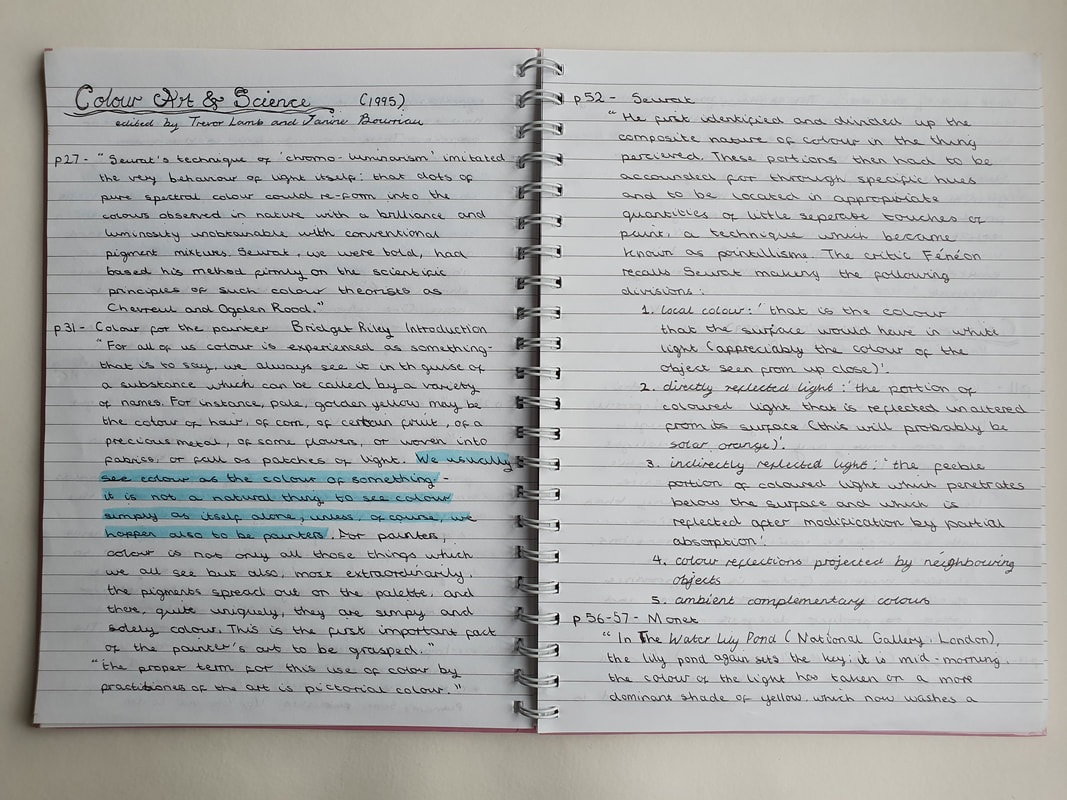 Colour Art & Science (1995)
edited by Trevor Lamb and Janine Bourriau
p27 - "Seurat's technique of 'chromo-luminarism' imitated
the very behaviour of light itself: that dots of
pure spectral colour could re-form into the
colours observed in nature with a brilliance and
luminosity unobtainable with conventional
pigment mixtures. Seurat, we were bold, had
based his method firmly on the scientific
principles of such colour theorists as
Chevreul and Ogden Rood."
p31 - Colour for the painter Bridget Riley Introduction
"For all of us colour is experienced as something -
that is to say, we always see it in th guise of
a substance which can be called by a variety
of names. For instance, pale, golden yellow may be
the colour of hair, of corn, of certain fruit, of a
precious metal, of some flowers, or woven into
fabrics, or fall as patches of light. We usually
see colour as the colour of something -
it is not a natural thing to see colour
simply as itself alone, unless, of course, we
happen also to be painters. For painters,
colour is not only all those things which
we all see but also, most extraordinarily,
the pigments spread out on the palette, and
there, quite uniquely, they are simpy and
solely colour. This is the first important fact
of the painter's art to be grasped."
"the proper term for this use of colour by
practitioners of the art is pictorial colour."
p52 - Seurat
"He first identified and divided up the
composite nature of colour in the thing
percieved. These portions then had to be
accounded for through specific hues
and to be located in appropriate
quantities of little seperate touches of
paint, a technique which became
known as pointillisme. The critic Fénéon
recalls Seurat making the following
divisions:
1. local colour: 'that is the colour
that the surface would have in white
light (appreciably the colour of the
object seen from up close)'.
2. directly reflected light: 'the portion of
coloured light that is reflected unaltered
from its surface (this will probably be
solar orange)'.
3. indirectly reflected light: 'the feeble
portion of coloured light which penetrates
below the surface and which is
reflected after modification by partial
absorption'.
4. colour reflections projected by neighbouring
objects
5. ambient complementary colours
p56-57 - Monet
"In The Water Lily Pond (National Gallery, London),
the lily pond again sets the key; it is mid-morning,
the colour of the light has taken on a more
dominant shade of yellow, which now washes a